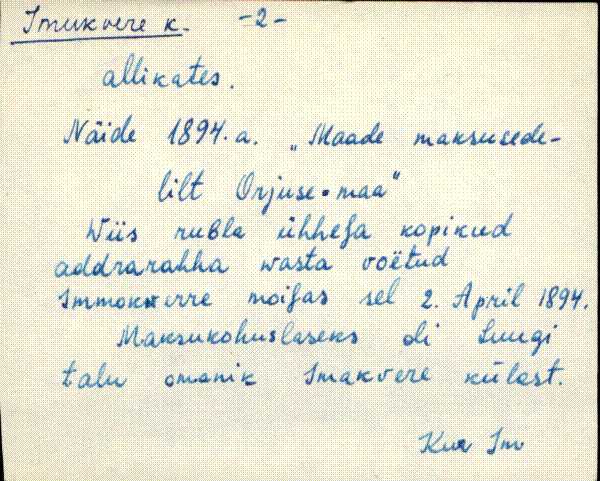 Imukvere k. -2-
allikates.
Näide 1894.a. „Maade maksusede-
lilt Orjuse-maa"
Wiis rubla ühheſa kopikud
addrarahha wasta voëtud
Immokwerre moiſas sel 2. April 1894.
Maksukohuslaseks oli Luugi
talu omanik Imakvere külast.
Kur Im